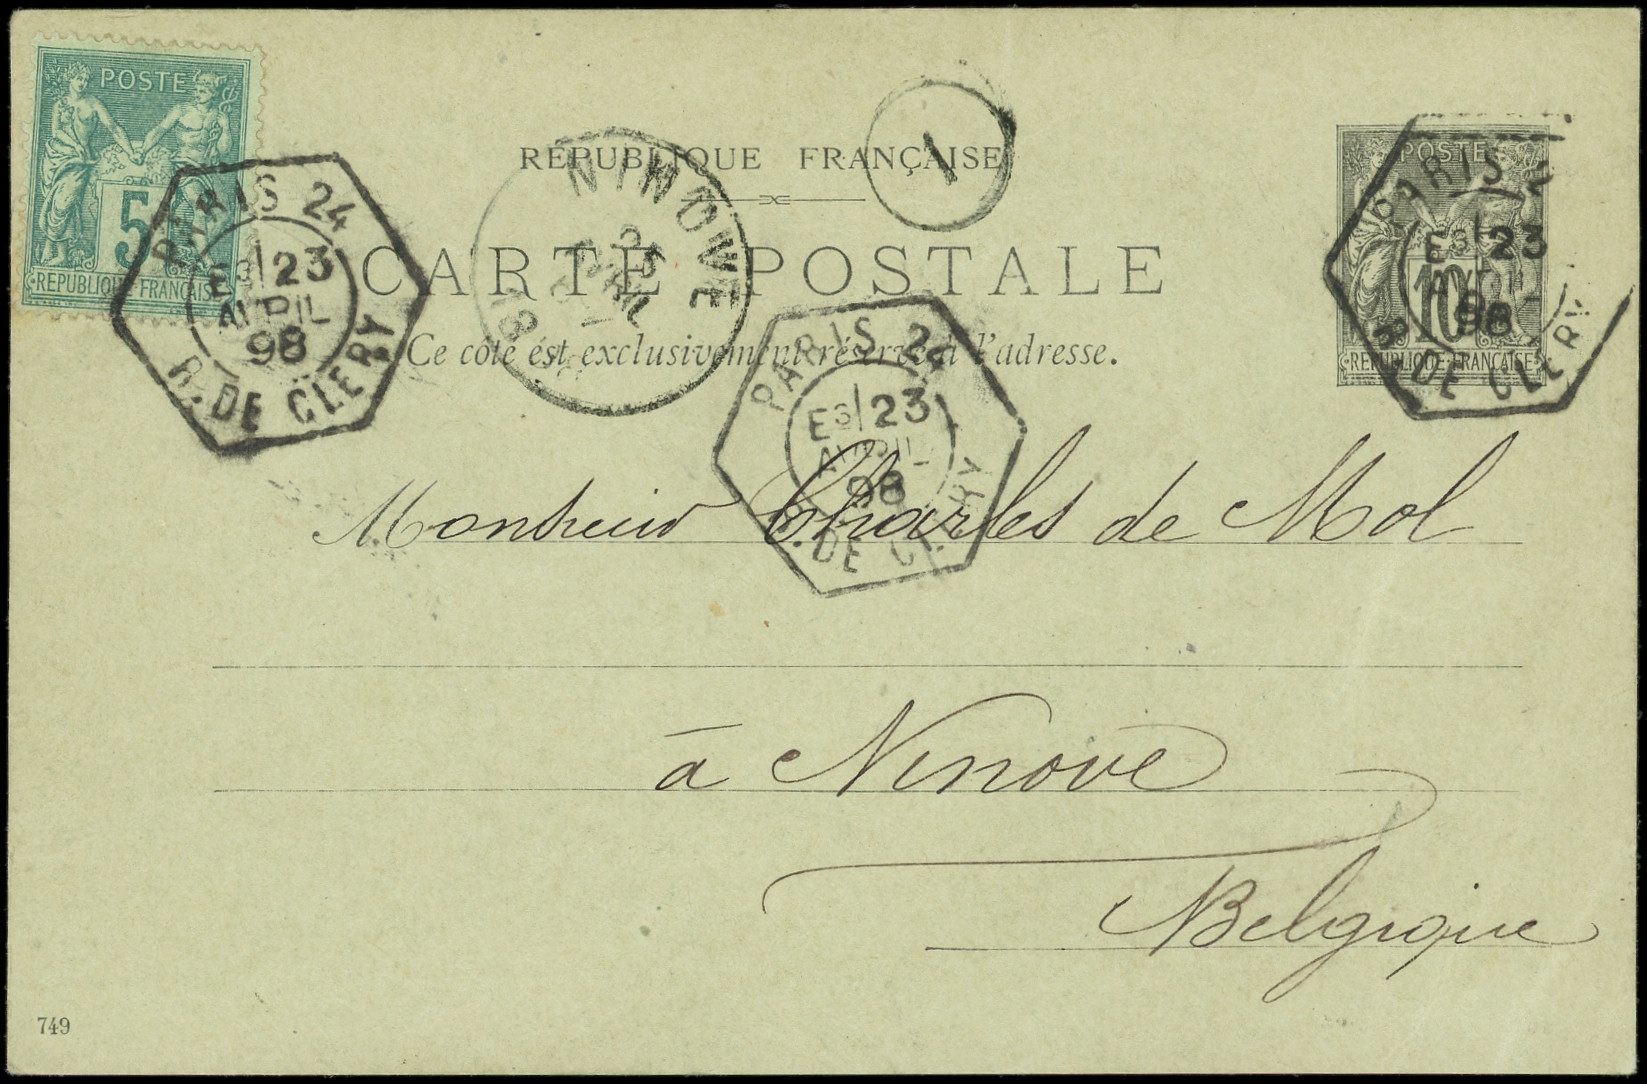 POSTE
5
REPUBLIQUE FRANÇAISE
PARIS 24
E3 23
AVRIL
98
R. DE CLERY
RÉPUBLIQUE FRANÇAISE
1
NINOVE
CARTE POSTALE
Ce côté est exclusivement réservé à l'adresse.
POSTE
10
REPUBLIQUE FRANÇAISE
PARIS 2
E3 23
98
R. DE CLERY
PARIS 24
E3 23
AVRIL
98
R. DE CLERY
Monsieur Charles de Mol
à Ninove
Belgique
749